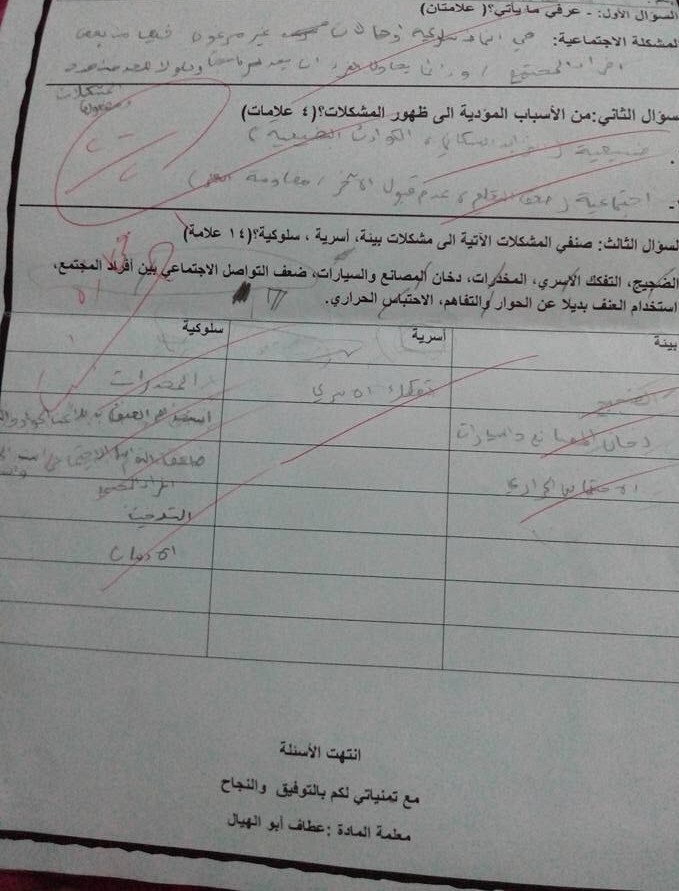 السؤال الأول: - عرفي ما يأتي؟( علامتان)
المشكلة الاجتماعية: هي انماط سلوكية أو حالات غير مرغوب فيها من بعض
افراد المجتمع
المشكلات
سؤال الثاني:من الأسباب المؤدية الى ظهور المشكلات؟( ٤ علامات)
طبيعية ( تزايد السكان ، الكوارث الطبيعية )
اجتماعية ( ضعف التعلم ، عدم قبول الآخر / مقاومة التغير )
لسؤال الثالث: صنفي المشكلات الآتية الى مشكلات بيئة، أسرية ، سلوكية؟( ١٤ علامة)
الضجيج، التفكك الاسري، المخدرات، دخان المصانع والسيارات، ضعف التواصل الاجتماعي بين أفراد المجتمع،
استخدام العنف بديلا عن الحوار والتفاهم، الاحتباس الحراري.
بيئة أسرية سلوكية
الضجيج تفكك الاسري المخدرات
دخان المصانع والسيارات استخدام العنف بديلا عن الحوار
الاحتباس الحراري ضعف التواصل الاجتماعي بين
افراد المجتمع
التدخين
انتهت الأسئلة
مع تمنياتي لكم بالتوفيق والنجاح
معلمة المادة :عطاف أبو الهيال